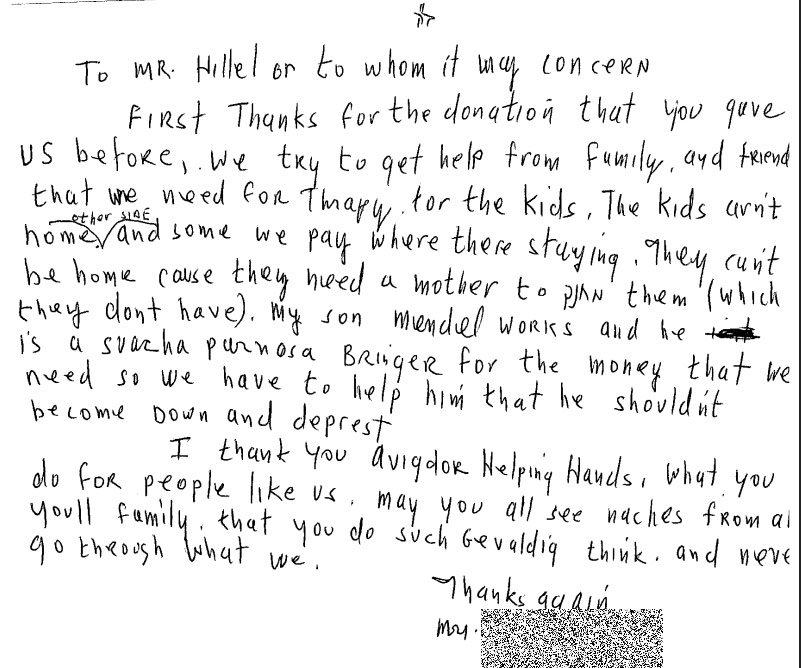 To MR. Hillel or to whom it may concern
First Thanks for the donation that you gave
us before, we try to get help from family, and friend
that we need for Thrapy. for the kids, The kids arn't
other SIDE
home, and some we pay where there staying. They can't
be home cause they need a mother to them (which
they dont have). My son Mendel works and he
is a svacha purnosa Bringer for the money that we
need so we have to help him that he shouldn't
become Down and deprest
I thank you Avigdor Helping Hands, What you
do for people like us. may you all see naches from al
youll family. that you do such Gevaldig think. and neve
go through what we.
Thanks again